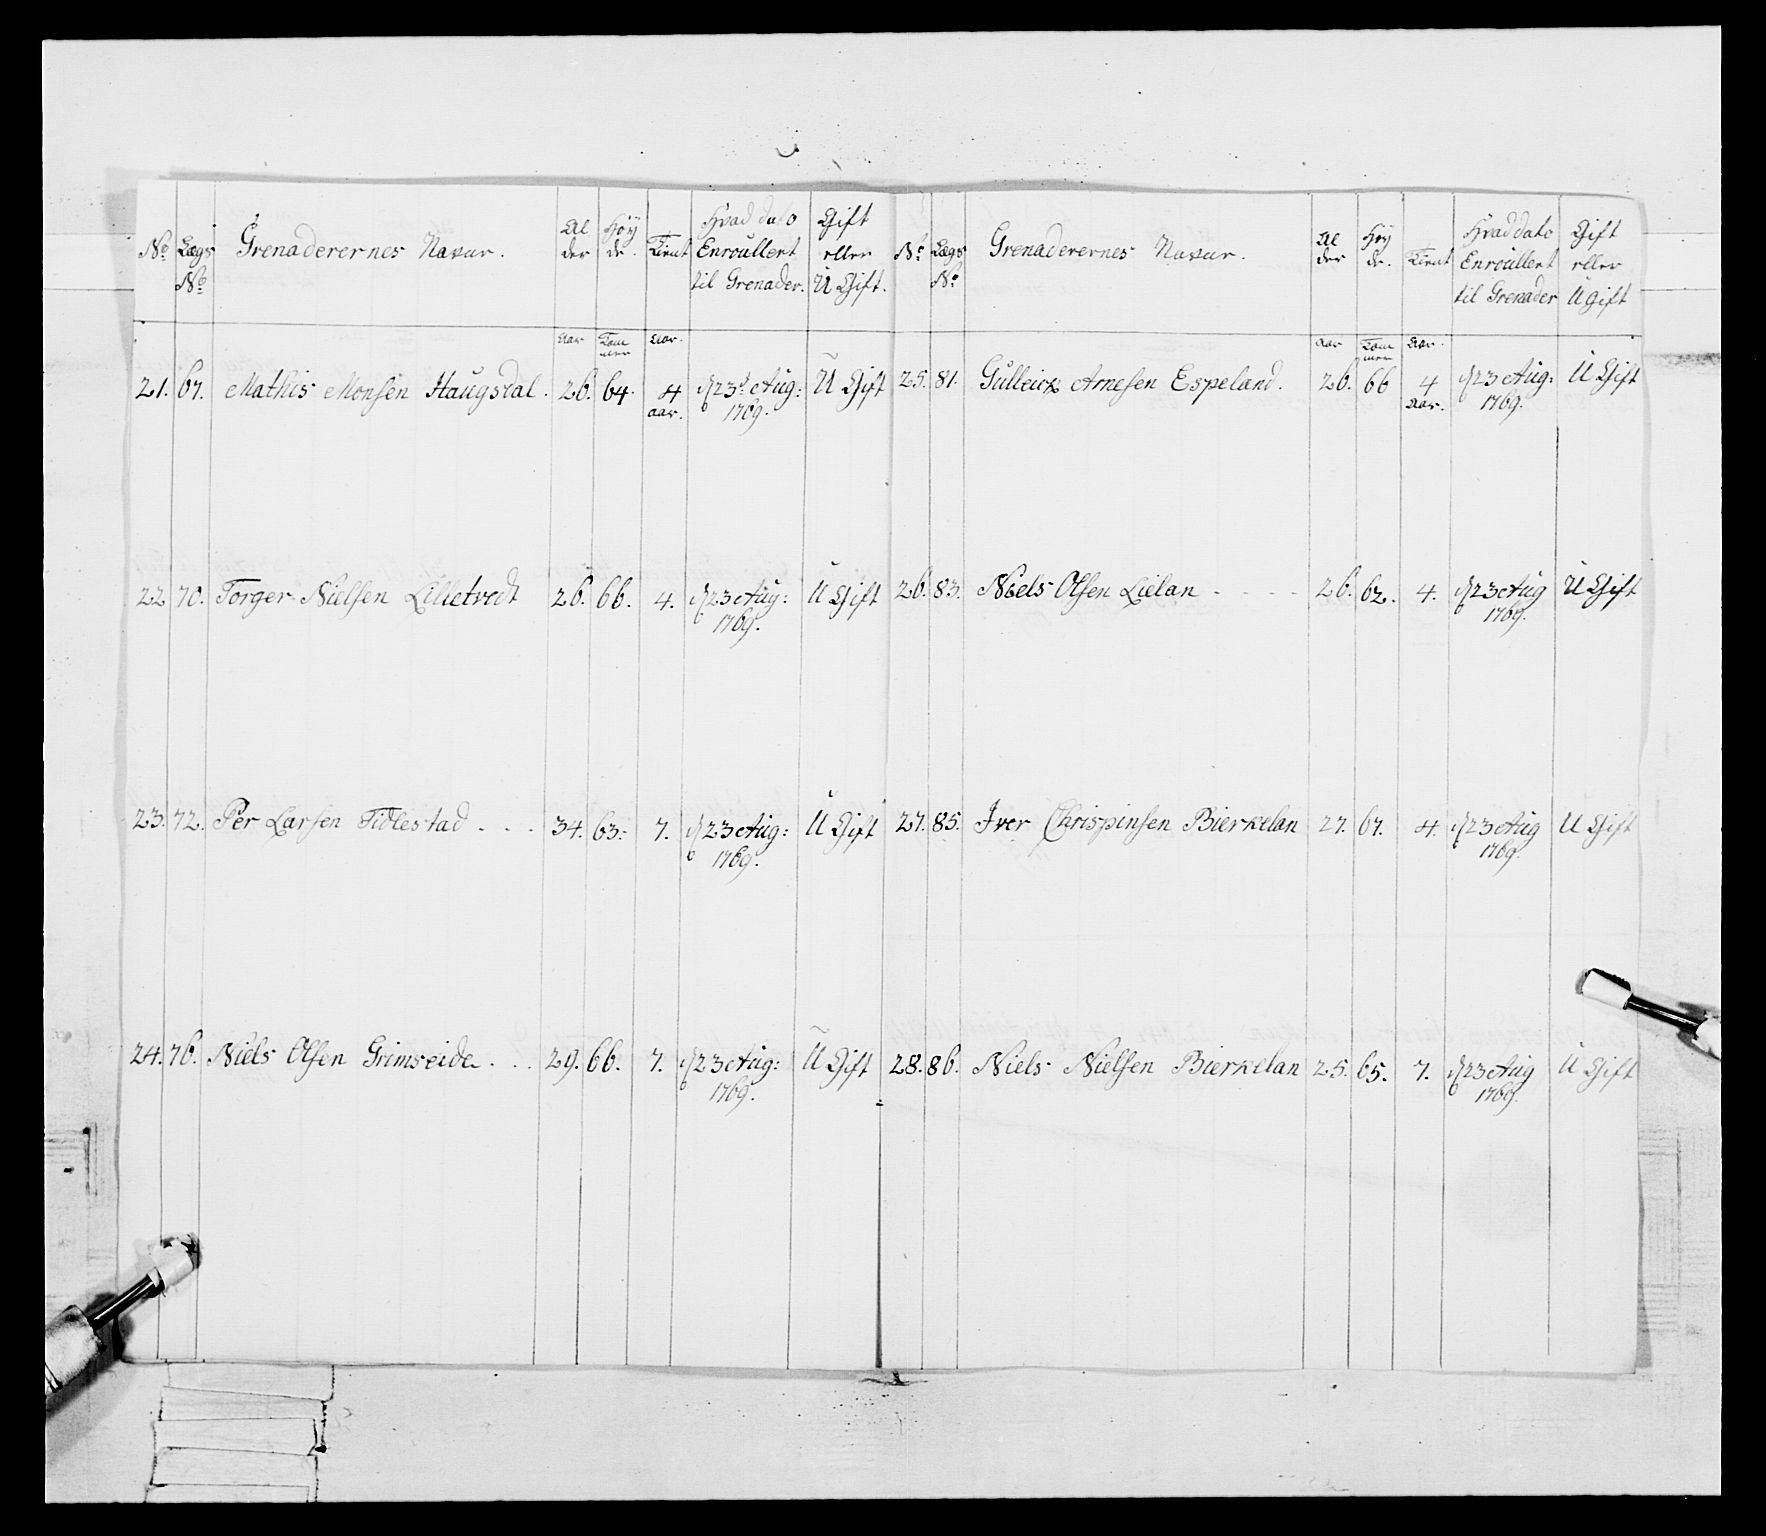 No Lægs No Grenaderernes Navne. Alder Høyde. Tient Hvad dato Enroullert til Grenader. Gift eller U Gift.
Aar Tommer Aar.
21. 67. Mathis Monsen Haugsdal. 26. 64. 4 aar. d 23de Aug: 1769. U Gift
22 70. Torger Nielsen Lilletvedt 26. 66. 4. d 23 Aug: 1769. U Gift
23. 72. Per Larsen Tidlestad . . . 34. 63. 7. d 23 Aug: 1769. U Gift
24. 76. Niels Olsen Grimseide . . . 29. 66. 7. d 23 Aug: 1769. U Gift
No Lægs No Grenaderernes Navne. Alder Høyde. Tient Hvad dato Enroullert til Grenader Gift eller Ugift
Aar Tommer Aar.
25. 81. Gulleick Arnesen Espeland. 26. 66 4 Aar. d 23 Aug: 1769. U Gift
26. 83. Niels Olsen Lielan . . . . 26. 62. 4. d 23 Aug 1769. U Gift
27. 85. Iver Chrispinsen Bierkelan 27. 67. 4. d 23 Aug 1769. U Gift
28. 86. Niels Nielsen Bierkelan 25. 65. 7. d 23 Aug 1769. U Gift